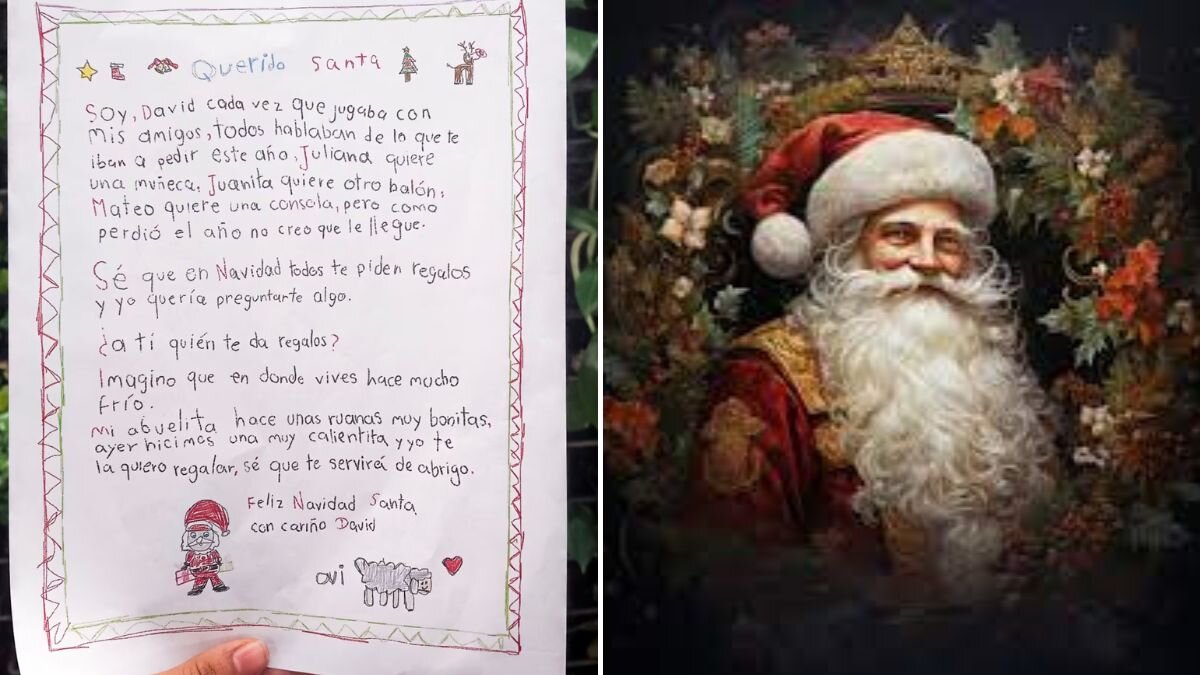 Querido Santa
Soy, David cada vez que jugaba con
mis amigos, todos hablaban de lo que te
iban a pedir este año, Juliana quiere
una muñeca, Juanita quiere otro balón,
Mateo quiere una consola, pero como
perdió el año no creo que le llegue.
Sé que en Navidad todos te piden regalos
y yo quería preguntarte algo.
¿a ti quién te da regalos?
Imagino que en donde vives hace mucho
frío.
mi abuelita hace unas ruanas muy bonitas,
ayer hicimos una muy calientita y yo te
la quiero regalar, sé que te servirá de abrigo.
Feliz Navidad Santa
con cariño David
ovi